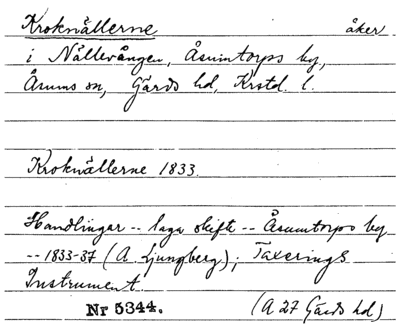 Kroknällerne åker
i Nällevången, Åsumtorps by,
Åsums sn, Gärds hd, Krstd. l.
Kroknällerne 1833.
Handlingar -- laga skifte -- Åsumtorps by
-- 1833-37 (A. Ljungberg); Taxerings
Instrument.
Nr 5344. (A 27 Gärds hd)